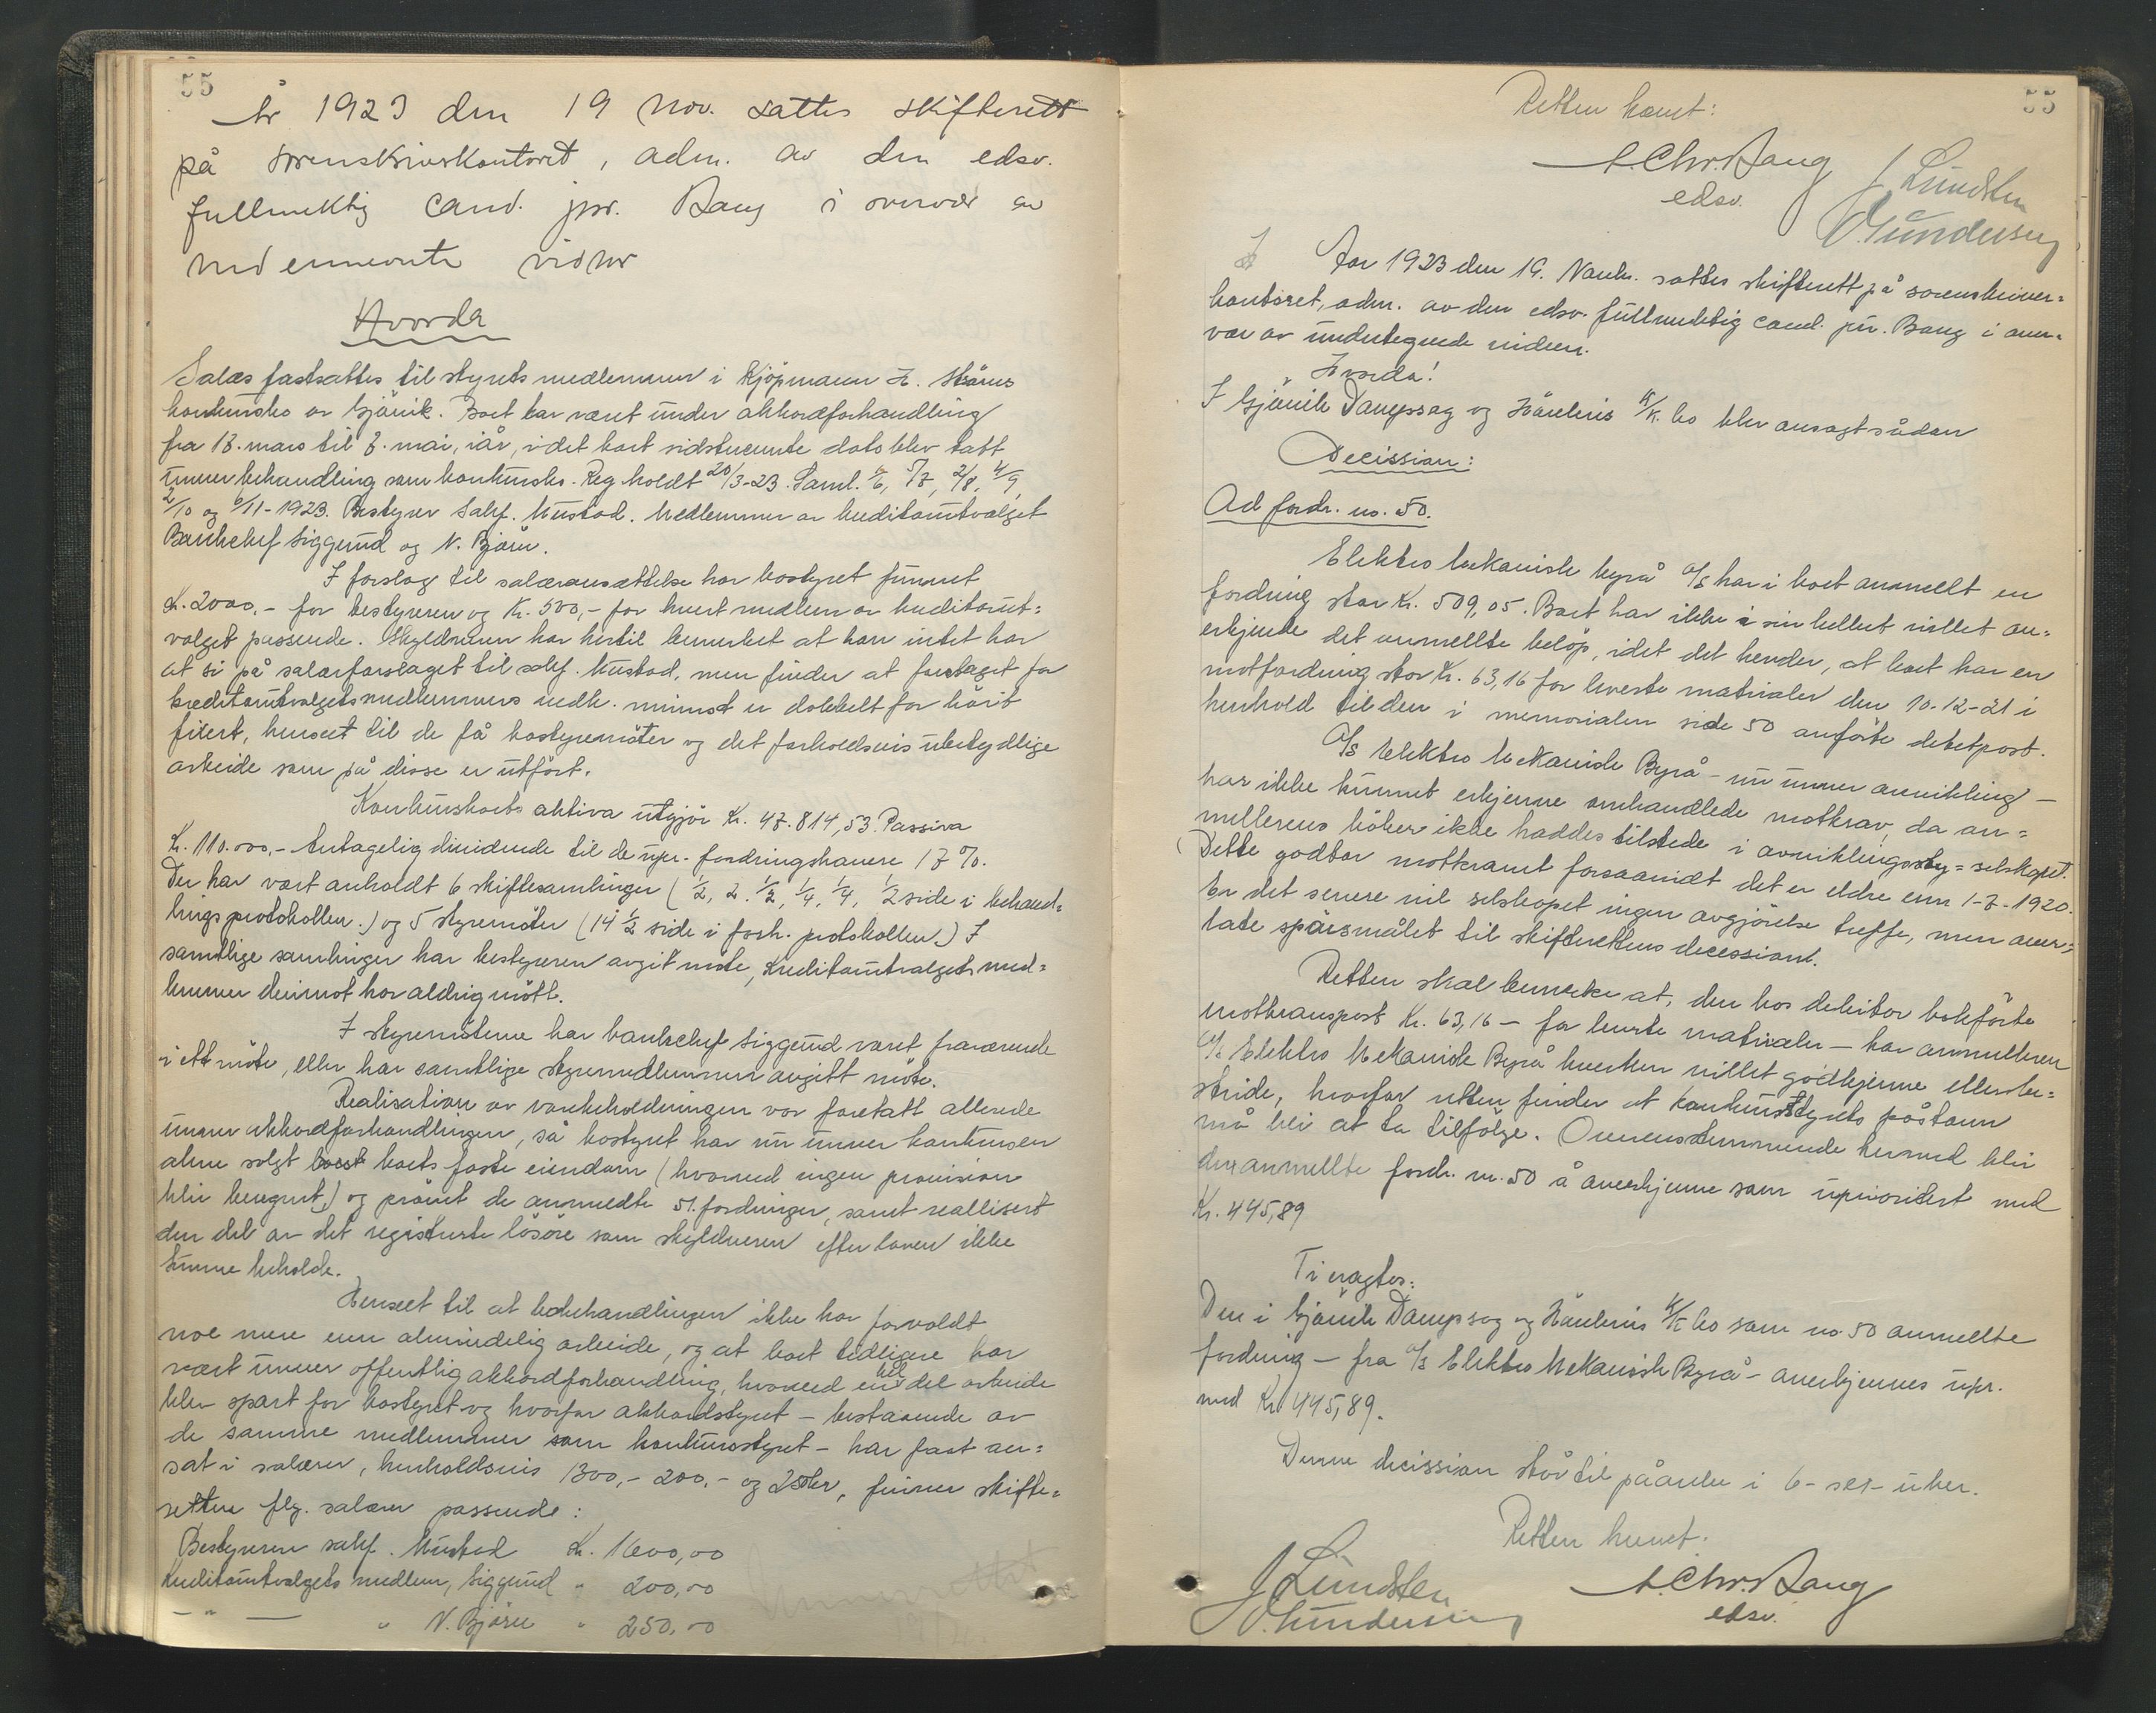 55
År 1923 den 19 Nov. sattes skifterett
på sorenskriverkontoret, adm. av den edsv.
fullmektig cand. jur. Bang i overvær av
nedennevnte vidner
Hvorda
Salær fastsattes til styrets medlemmer i Kjøpmann H.
konkursbo av Gjövik. Boet har været under akkordforhandling
fra 13. mars til 7. mai, iår, idet boet sidstnevnte dato blev tatt
unner behandling som konkursbo. Reg. holdt 20/3-23. Saml. 5/7, 2/8, 4/9,
2/10 og 6/11-1923. Bestyrer Sakf. Mustad. Medlemmer av kreditorutvalget
Bankchef Siggerud og N. Bjørn.
I forslag til salæransættelse har bostyret funnet
Kr. 2000,- for bestyreren og Kr. 500,- for hvert medlem av kreditorut=
valget passende. Skyldneren har hertil bemerket at han intet har
at si på salærforslaget til sakf. Mustad, men finder at forslaget for
kreditorutvalgets medlemmers vedk. minnst er dobbelt for höit
, henseet til de få bostyremöter og det forholdsvis ubetydlige
arbeide som på disse er utfört.
Konkursboets aktiva utgjör Kr. 47.814,53. Passiva
Kr. 110.000,- Antagelig dividende til de upr. fordringshavere 17 %.
Der har vært avholdt 6 skiftesamlinger (1/2, 2. 1/2, 1/4, 1/4, 1/2 side i behand=
lingsprotokollen.) og 5 styremöter (14 1/2 side i forh. protokollen.) I
samtlige samlinger har bestyreren avgit möte, Kreditorutvalgets med=
lemmer derimot har aldrig mött.
I styremöterne har bankchef Siggerud været fraværende
i ett möte, ellers har samtlige styremedlemmer avgitt möte.
Realisation av varebeholdningen var foretatt allerede
unner akkordforhandlingen, så bostyret har nu unner konkursen
alene solgt boets faste eiendom (hvorved ingen provision
blir beregnet) og prövet de anmeldte 51. fordringer, samt reallisert
den del av det registrerte lösöre som skyldneren efter loven ikke
kunne beholde.
Henseet til at bobehandlingen ikke har forvoldt
noe mere enn almindelig arbeide, og at boet tidligere har
vært unner offentlig akkordforhandling, hvorved en hel del arbeide
blev spart for bostyret og hvorfor akkordstyret - bestaaende av
de samme medlemmer som konkursstyret - har faat an=
sat i salærer, henholdsvis 1300,- 200,- og 250kr, finner skifte=
retten flg. salærer passende:
Bestyreren sakf. Mustad Kr. 1600,00
Kreditorutvalgets medlem, Siggerud " 200,00
- " - " N. Bjørn " 250,00
55
Retten hevet:
A. Chr. Bang
edsv.
J Lundsten
O. Gundersen
Aar 1923 den 19. Novbr. sattes skifterett på sorenskriver=
kontoret, adm. av den edsv. fullmektig cand. jur. Bang i over=
vær av undertegnede vidner.
Hvorda!
I Gjövik Dampsag og Hövleris K/K. bo blev avsagt sådan
Decission:
Ad fordr. no. 50.
Elektro Mekanisk byrå A/S har i boet anmellt en
fordring stor Kr. 509,05. Boet har ikke i sin helhet villet an=
erkjende det anmellte belöp, idet det hevder, at boet har en
motfordring stor Kr. 63,16 for leverte materialer den 10-12-21 i
henhold til den i memorialen side 50 anförte debetpost.
A/S Elektro Mekanisk Byrå - nu unner avvikling -
har ikke kunnet erkjenne omhandlede motkrav, da an=
mellerens böker ikke haddes tilstede i avviklingssty= selskapet.
Dette godtar motkravet forsaavidt det er eldre enn 1-7-1920.
Er det senere vil selskapet ingen avgjörelse treffe, men over=
late spörsmålet til skifterettens decession.
Retten skal bemerke at, den hos debitor bokförte
motkravspost Kr. 63,16 - for leverte materialer - har anmelleren
A/S Elektro Mekanisk Byrå hverken villet godkjenne eller be=
stride, hvorfor retten finder at konkursstyrets påstann
må bli at ta tilfölge. Overensstemmende hermed blir
den anmellte fordr. nr. 50 å anerkjenne som uprioritert med
Kr. 445,89
Ti eragtes:
Den i Gjövik Dampsag og Hövleris K/K bo som no 50 anmellte
fordring - fra A/S Elektro Mekanisk Byrå - anerkjennes upr.
med Kr. 445,89.
Denne decission står til påanke i 6- seks- uker.
Retten hevet.
J Lundsten
O. Gundersen
A. Chr. Bang
edsv.